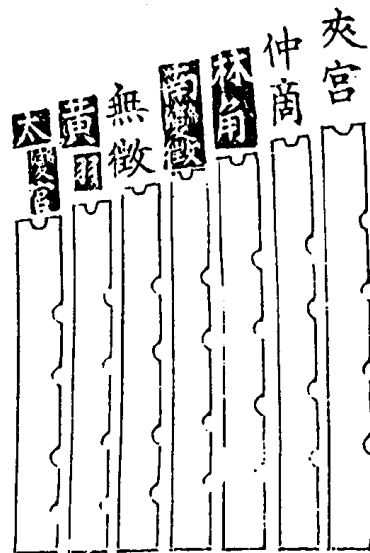 夾宫
仲商
林角
南變徵
無徵
黄羽
太變宫